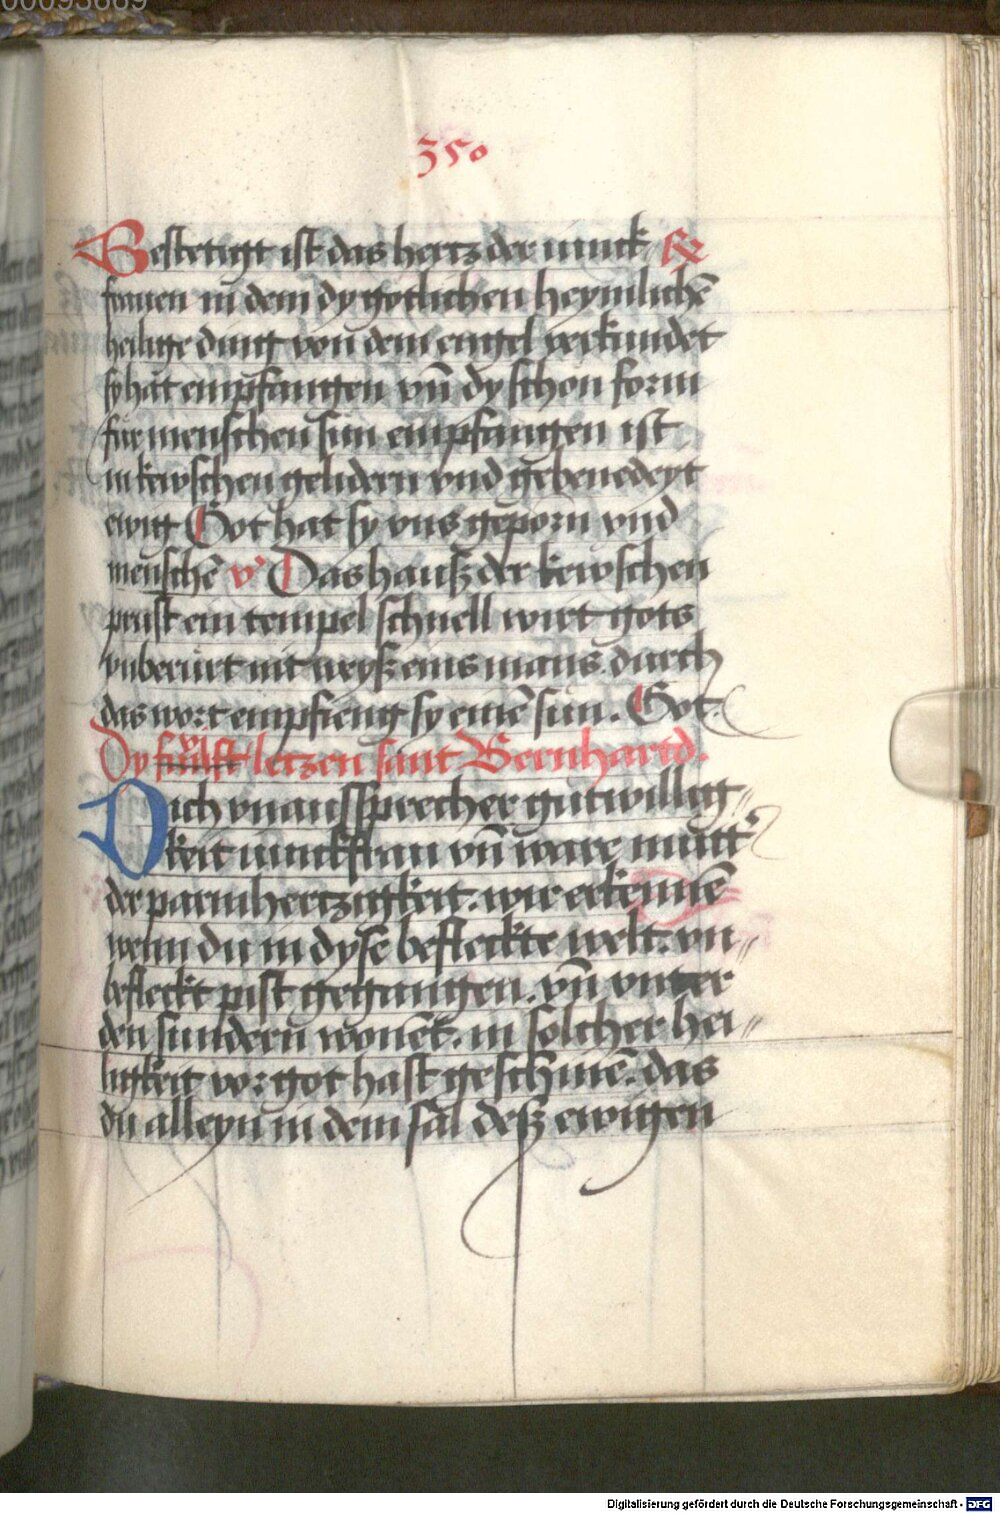 00093689
350
Bestetigt ist das hertz der iunck ℟
frauen in dem dy gotlichen heymlichē
heilige ding von dem engel verkundet
sy hat empfangen vn̄ dy schon form
fur menschen sun empfangen ist
in kewschen gelidern vnd gebenedeyt
ewig Got hat sy vns geporn vnd
menschē v' Das hausz der kewschen
prust ein tempel schnell wirt gots
vnberurt nit weysz eins mans durch
das wort empfieng sy einē sun. Got.
Dy letzen sant Bernhartd.
Dich vnaussprecher gutwillig
keit iunckfrau vn̄ ware mutt'
der parmhertzigkeit. wir erkennē
wenn du in dyse befleckte welt. vn
befleckt pist gegangen. vn̄ vnter
den sundern wonēt. in solcher hei
ligkeit vor got hast geschinē. das
du alleyn in dem sal desz ewigen
Digitalisierung gefördert durch die Deutsche Forschungsgemeinschaft - DFG